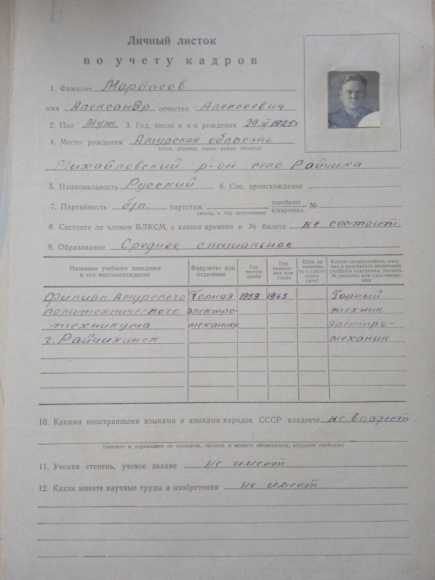 Личный листок
по учету кадров
1. Фамилия Мордасов
имя Александр отчество Алексеевич
2. Пол Муж 3. Год, число и м-ц рождения 29 1925г
4. Место рождения Амурская область
(село, деревня, город, район, область)
Михайловский р-он село Райчиха
5. Национальность Русский 6. Соц. происхождение
7. Партийность б/п партстаж партбилет №
кандкарточка
8. Состоите ли членом ВЛКСМ, с какого времени и № билета не состоит
9. Образование Среднее специальное
Название учебного заведения и его местонахождение
Факультет или отделение
Год поступления
Год окончания или ухода
Если не окончил, то с какого курса ушел
Какую специальность получил в результате окончания учебного заведения, указать № диплома или удостоверения
Филиал Амурского Горная 1959 1963 Горный
политехнического электро- техник
техникума механик электро-
г. Райчихинск механик
10. Какими иностранными языками и языками народов СССР владеете не владеет
(читаете и переводите со словарем, читаете и можете объясняться, владеете свободно)
11. Ученая степень, ученое звание не имеет
12. Какие имеете научные труды и изобретения не имеет